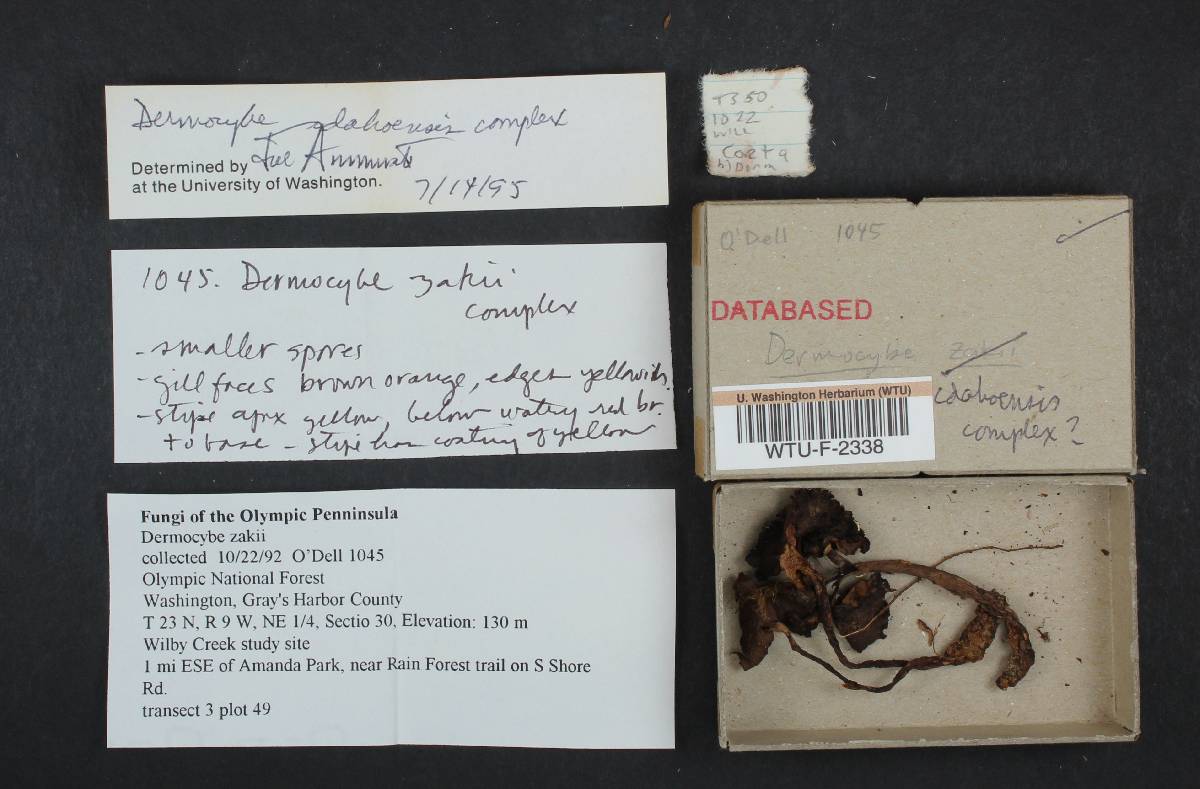 Dermocybe idahoensis complex
Determined by Joe Ammirati
at the University of Washington.
7/14/95
1045. Dermocybe zakii
complex
- smaller spores
- gill faces brown orange, edges yellowish.
- stipe apex yellow, below watery red br.
to base - stipe has coating of yellow
Fungi of the Olympic Penninsula
Dermocybe zakii
collected 10/22/92 O'Dell 1045
Olympic National Forest
Washington, Gray's Harbor County
T 23 N, R 9 W, NE 1/4, Sectio 30, Elevation: 130 m
Wilby Creek study site
1 mi ESE of Amanda Park, near Rain Forest trail on S Shore
Rd.
transect 3 plot 49
T3 50
1022
WILL
O'Dell 1045
DATABASED
Dermocybe zakii
idahoensis
complex?
U. Washington Herbarium (WTU)
WTU-F-2338